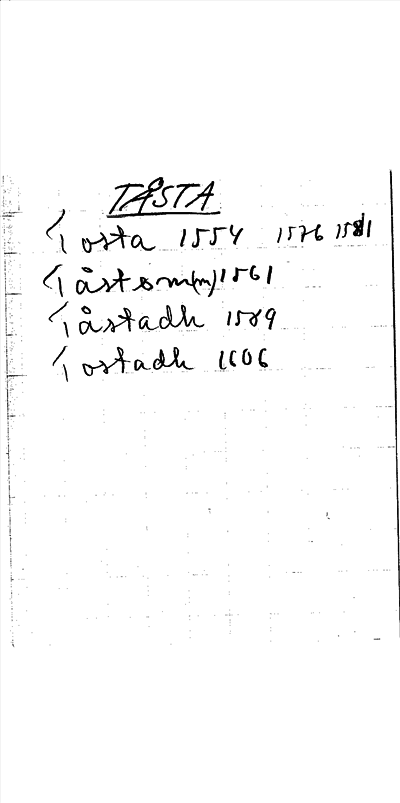 TÅSTA
Tosta 1554 1576 1581
Tåstom(m) 1561
Tåstadh 1589
Tostadh 1606